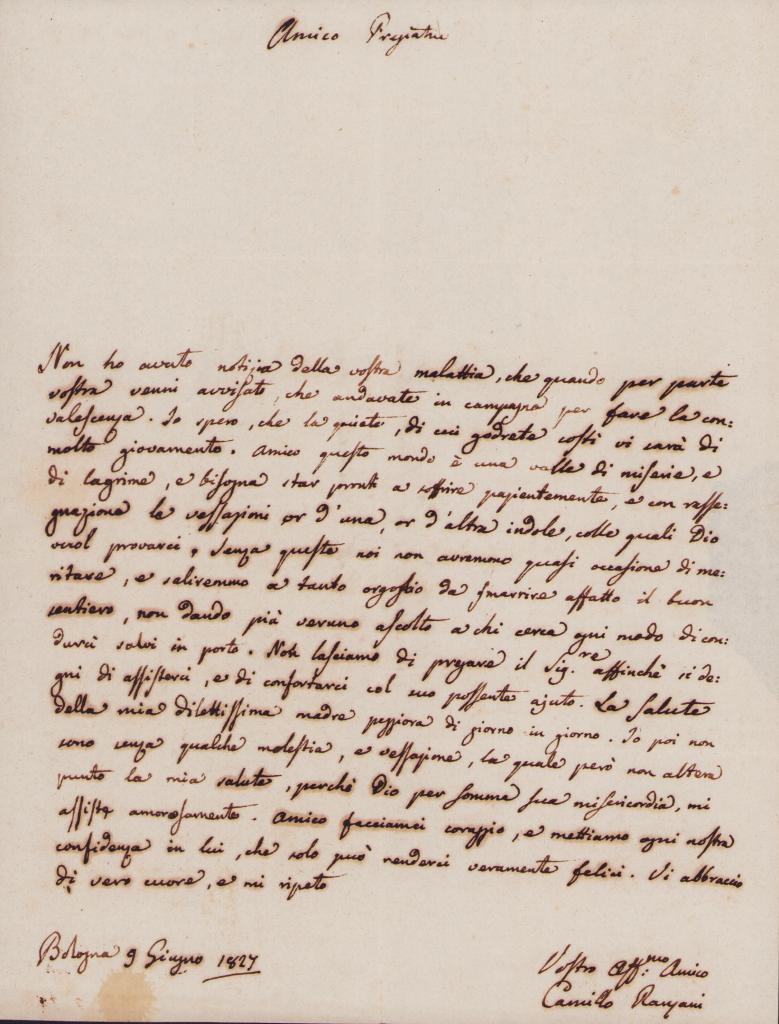 Amico Pregiatmo
Non ho avuto notizia della vostra malattia, che quando per parte
vostra venni avvisato, che andavate in campagna per fare la con:
valescenza. Io spero, che la quiete, di cui godrete costì vi sarà di
molto giovamento. Amico questo mondo è una valle di miserie, e
di lagrime, e bisogna star pronti a soffrire pazientemente, e con rasse:
gnazione le vessazioni or d'una, or d'altra indole, colle quali Dio
vuol provarci. Senza queste noi non avremmo quasi occasione di me:
ritare, e saliremmo a tanto orgoglio da smarrire affatto il buon
sentiero, non dando più veruno ascolto a chi cerca ogni modo di con:
durci salvi in porto. Non lasciamo di pregare il Sig.re affinchè si de:
gni di assisterci, e di confortarci col suo possente ajuto. La salute
della mia dilettissima madre peggiora di giorno in giorno. Io poi non
sono senza qualche molestia, e vessazione, la quale però non altera
punto la mia salute, perchè Dio per somma sua misericordia, mi
assiste amorosamente. Amico facciamci coraggio, e mettiamo ogni nostra
confidenza in lui, che solo può renderci veramente felici. Vi abbraccio
di vero cuore, e mi ripeto
Bologna 9 Giugno 1827
Vostro Aff:mo Amico
Camillo Ranzani